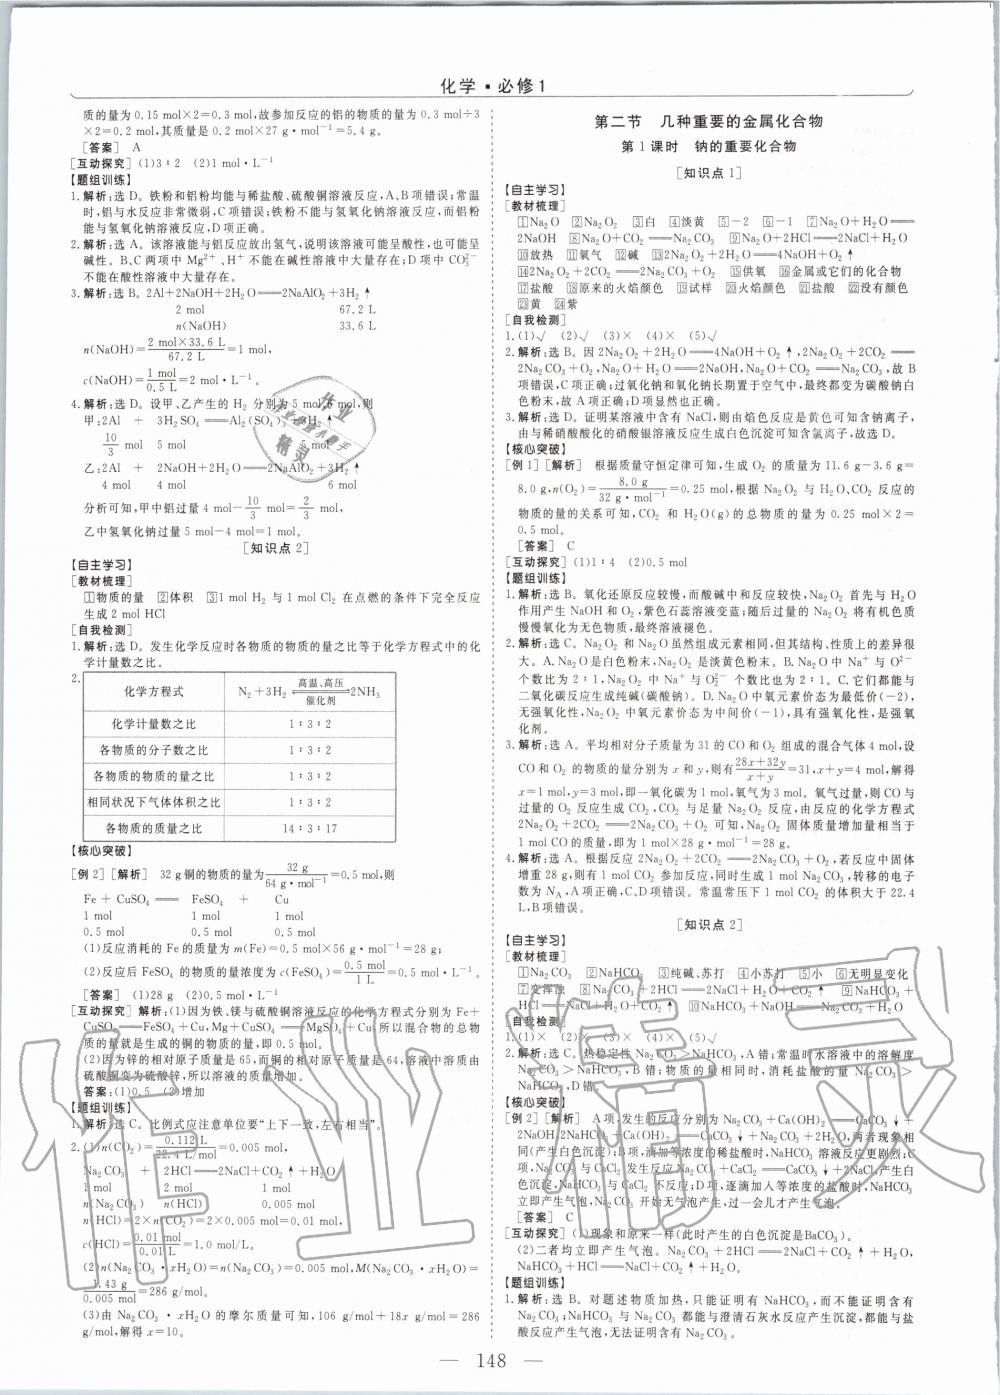 化学·必修1
质的量为0.15 mol×2=0.3 mol,故参加反应的铝的物质的量为0.3 mol÷3
×2=0.2 mol,其质量是0.2 mol×27 g·mol⁻¹=5.4 g。
[答案] A
[互动探究](1)3∶2 (2)1 mol·L⁻¹
【题组训练】
1.解析:选D。铁粉和铝粉均能与稀盐酸、硫酸铜溶液反应,A、B项错误;常温
时,铝与水反应非常微弱,C项错误;铁粉不能与氢氧化钠溶液反应,而铝粉
能与氢氧化钠溶液反应,D项正确。
2.解析:选A。该溶液能与铝反应放出氢气,说明该溶液可能呈酸性,也可能呈
碱性。B、C两项中Mg²⁺、H⁺不能在碱性溶液中大量存在;D项中CO₃²⁻
不能在酸性溶液中大量存在。
3.解析:选B。2Al+2NaOH+2H₂O══2NaAlO₂+3H₂↑
2 mol 67.2 L
n(NaOH) 33.6 L
n(NaOH)=2 mol×33.6 L/67.2 L=1 mol,
c(NaOH)=1 mol/0.5 L=2 mol·L⁻¹。
4.解析:选D。设甲、乙产生的H₂分别为5 mol、6 mol,则
甲:2Al + 3H₂SO₄══Al₂(SO₄)₃+3H₂↑
10/3 mol 5 mol 5 mol
乙:2Al + 2NaOH+2H₂O══2NaAlO₂+3H₂↑
4 mol 4 mol 6 mol
分析可知,甲中铝过量4 mol-10/3 mol=2/3 mol,
乙中氢氧化钠过量5 mol-4 mol=1 mol。
[知识点2]
【自主学习】
[教材梳理]
①物质的量 ②体积 ③1 mol H₂与1 mol Cl₂在点燃的条件下完全反应
生成2 mol HCl
[自我检测]
1.解析:选D。发生化学反应时各物质的物质的量之比等于化学方程式中的化
学计量数之比。
2.
化学方程式 N₂+3H₂ 高温、高压 催化剂 2NH₃
化学计量数之比 1∶3∶2
各物质的分子数之比 1∶3∶2
各物质的物质的量之比 1∶3∶2
相同状况下气体体积之比 1∶3∶2
各物质的质量之比 14∶3∶17
【核心突破】
[例2][解析] 32 g铜的物质的量为32 g/64 g·mol⁻¹=0.5 mol,则
Fe + CuSO₄══ FeSO₄ + Cu
1 mol 1 mol 1 mol
0.5 mol 0.5 mol 0.5 mol
(1)反应消耗的Fe的质量为m(Fe)=0.5 mol×56 g·mol⁻¹=28 g;
(2)反应后FeSO₄的物质的量浓度为c(FeSO₄)=0.5 mol/1 L=0.5 mol·L⁻¹。
[答案] (1)28 g (2)0.5 mol·L⁻¹
[互动探究]解析:(1)因为铁、镁与硫酸铜溶液反应的化学方程式分别为Fe+
CuSO₄══FeSO₄+Cu,Mg+CuSO₄══MgSO₄+Cu,所以混合物的总物
质的量就是生成的铜的物质的量,即0.5 mol。
(2)因为锌的相对原子质量是65,而铜的相对原子质量是64,溶液中溶质由
硫酸铜变为硫酸锌,所以溶液的质量增加。
答案:(1)0.5 (2)增加
【题组训练】
1.解析:选C。比例式应注意单位“上下一致,左右相当”。
2.(1)n(CO₂)=0.112 L/22.4 L/mol=0.005 mol,
Na₂CO₃ + 2HCl══2NaCl+CO₂↑+H₂O
1 mol 2 mol 1 mol
n(Na₂CO₃) n(HCl) 0.005 mol
n(HCl)=2×n(CO₂)=2×0.005 mol=0.01 mol,
c(HCl)=0.01 mol/0.01 L=1.0 mol/L。
(2)n(Na₂CO₃·xH₂O)=n(Na₂CO₃)=0.005 mol,M(Na₂CO₃·xH₂O)=
1.43 g/0.005 mol=286 g/mol。
(3)由Na₂CO₃·xH₂O的摩尔质量可知,106 g/mol+18x g/mol=286
g/mol,解得x=10。
第二节 几种重要的金属化合物
第1课时 钠的重要化合物
[知识点1]
【自主学习】
[教材梳理]
①Na₂O ②Na₂O₂ ③白 ④淡黄 ⑤-2 ⑥-1 ⑦Na₂O+H₂O══
2NaOH ⑧Na₂O+CO₂══Na₂CO₃ ⑨Na₂O+2HCl══2NaCl+H₂O
⑩放热 ⑪氧气 ⑫碱 ⑬2Na₂O₂+2H₂O══4NaOH+O₂↑
⑭2Na₂O₂+2CO₂══2Na₂CO₃+O₂ ⑮供氧 ⑯金属或它们的化合物
⑰盐酸 ⑱原来的火焰颜色 ⑲试样 ⑳火焰颜色 ㉑盐酸 ㉒没有颜色
㉓黄 ㉔紫
[自我检测]
1.(1)√ (2)√ (3)× (4)× (5)√
2.解析:选B。因2Na₂O₂+2H₂O══4NaOH+O₂↑,2Na₂O₂+2CO₂══
2Na₂CO₃+O₂,Na₂O+H₂O══2NaOH,Na₂O+CO₂══Na₂CO₃,故B
项错误,C项正确;过氧化钠和氧化钠长期置于空气中,最终都变为碳酸钠白
色粉末,故A正确;D项显然也正确。
3.解析:选D。证明某溶液中含有NaCl,则由焰色反应是黄色可知含钠离子,
由与稀硝酸酸化的硝酸银溶液反应生成白色沉淀可知含氯离子,故选D。
【核心突破】
[例1][解析] 根据质量守恒定律可知,生成O₂的质量为11.6 g-3.6 g=
8.0 g,n(O₂)=8.0 g/32 g·mol⁻¹=0.25 mol,根据Na₂O₂与H₂O、CO₂反应的
物质的量的关系可知,CO₂和H₂O(g)的总物质的量为0.25 mol×2=
0.5 mol。
[答案] C
[互动探究](1)1∶4 (2)0.5 mol
【题组训练】
1.解析:选B。氧化还原反应较慢,而酸碱中和反应较快,Na₂O₂首先与H₂O
作用产生NaOH和O₂,紫色石蕊溶液变蓝;随后过量的Na₂O₂将有机色质
慢慢氧化为无色物质,最终溶液褪色。
2.解析:选C。Na₂O₂和Na₂O虽然组成元素相同,但其结构、性质上的差异很
大。A.Na₂O是白色粉末,Na₂O₂是淡黄色粉末。B.Na₂O中Na⁺与O²⁻
个数比为2∶1,Na₂O₂中Na⁺与O₂²⁻个数比也为2∶1。C.它们都能与
二氧化碳反应生成纯碱(碳酸钠)。D.Na₂O中氧元素价态为最低价(-2),
无强氧化性,Na₂O₂中氧元素价态为中间价(-1),具有强氧化性,是强氧
化剂。
3.解析:选A。平均相对分子质量为31的CO和O₂组成的混合气体4 mol,设
CO和O₂的物质的量分别为x和y,则有28x+32y/x+y=31,x+y=4 mol,解得
x=1 mol,y=3 mol,即一氧化碳为1 mol,氧气为3 mol。氧气过量,则CO与
过量的O₂反应生成CO₂,CO₂与足量Na₂O₂反应,由反应的化学方程式
2Na₂O₂+2CO₂══2Na₂CO₃+O₂可知,Na₂O₂固体质量增加量相当于
1 mol CO的质量,即为1 mol×28 g·mol⁻¹=28 g。
4.解析:选A。根据反应2Na₂O₂+2CO₂══2Na₂CO₃+O₂,若反应中固体
增重28 g,则有1 mol CO₂参加反应,同时生成1 mol Na₂CO₃,转移的电子
数为Nₐ,A项正确,C、D项错误。常温常压下1 mol CO₂的体积大于22.4
L,B项错误。
[知识点2]
【自主学习】
[教材梳理]
①Na₂CO₃ ②NaHCO₃ ③纯碱、苏打 ④小苏打 ⑤小 ⑥无明显变化
⑦变浑浊 ⑧Na₂CO₃+2HCl══2NaCl+H₂O+CO₂↑ ⑨NaHCO₃+
HCl══NaCl+H₂O+CO₂↑ ⑩NaHCO₃+NaOH══Na₂CO₃+H₂O
[自我检测]
1.(1)× (2)× (3)× (4)× (5)√
2.解析:选C。热稳定性Na₂CO₃>NaHCO₃,A错;常温时水溶液中的溶解度
Na₂CO₃>NaHCO₃,B错;物质的量相同时,消耗盐酸的量Na₂CO₃
>NaHCO₃,D错。
【核心突破】
[例2][解析] A项,发生的反应分别为Na₂CO₃+Ca(OH)₂══CaCO₃↓+
2NaOH,2NaHCO₃+Ca(OH)₂══CaCO₃↓+Na₂CO₃+2H₂O,两者现象相
同(产生白色沉淀);B项,滴加等浓度的稀盐酸时,NaHCO₃溶液反应更剧烈;C
项,Na₂CO₃与CaCl₂发生反应Na₂CO₃+CaCl₂══CaCO₃↓+2NaCl,产生白
色沉淀,NaHCO₃与CaCl₂不反应;D项,逐滴加入等浓度的盐酸时,NaHCO₃
立即产生气泡,Na₂CO₃开始无气泡产生,过一会儿才产生气泡。
[答案] C
[互动探究](1)现象和原来一样(此时产生的白色沉淀是BaCO₃)。
(2)二者均立即产生气泡。Na₂CO₃+2HCl══2NaCl+CO₂↑+H₂O,
NaHCO₃+HCl══NaCl+CO₂↑+H₂O。
【题组训练】
1.解析:选B。对题述物质加热,只能证明有NaHCO₃,而不能证明含有
Na₂CO₃;NaHCO₃与Na₂CO₃都能与澄清石灰水反应产生沉淀,都能与盐
酸反应产生气泡,无法证明含有Na₂CO₃。
— 148 —
作业精灵